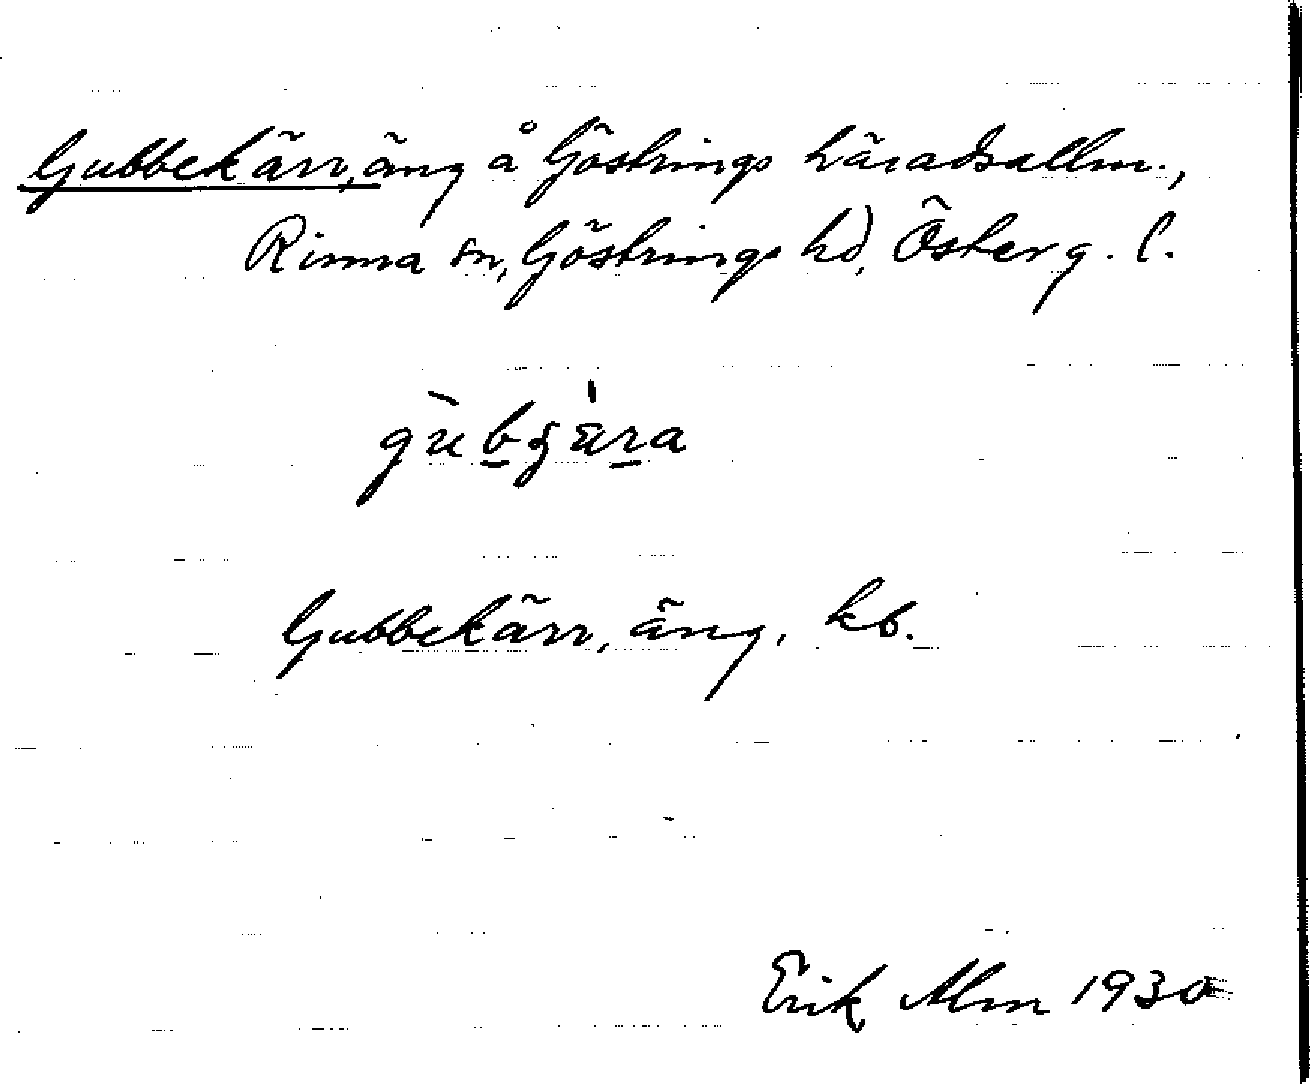 Gubbekärr, äng å Göstrings häradsallm.,
Rinna sn, Göstrings hd, Österg. l.
Gubbekärr, äng, kb.
Erik Alm 1930